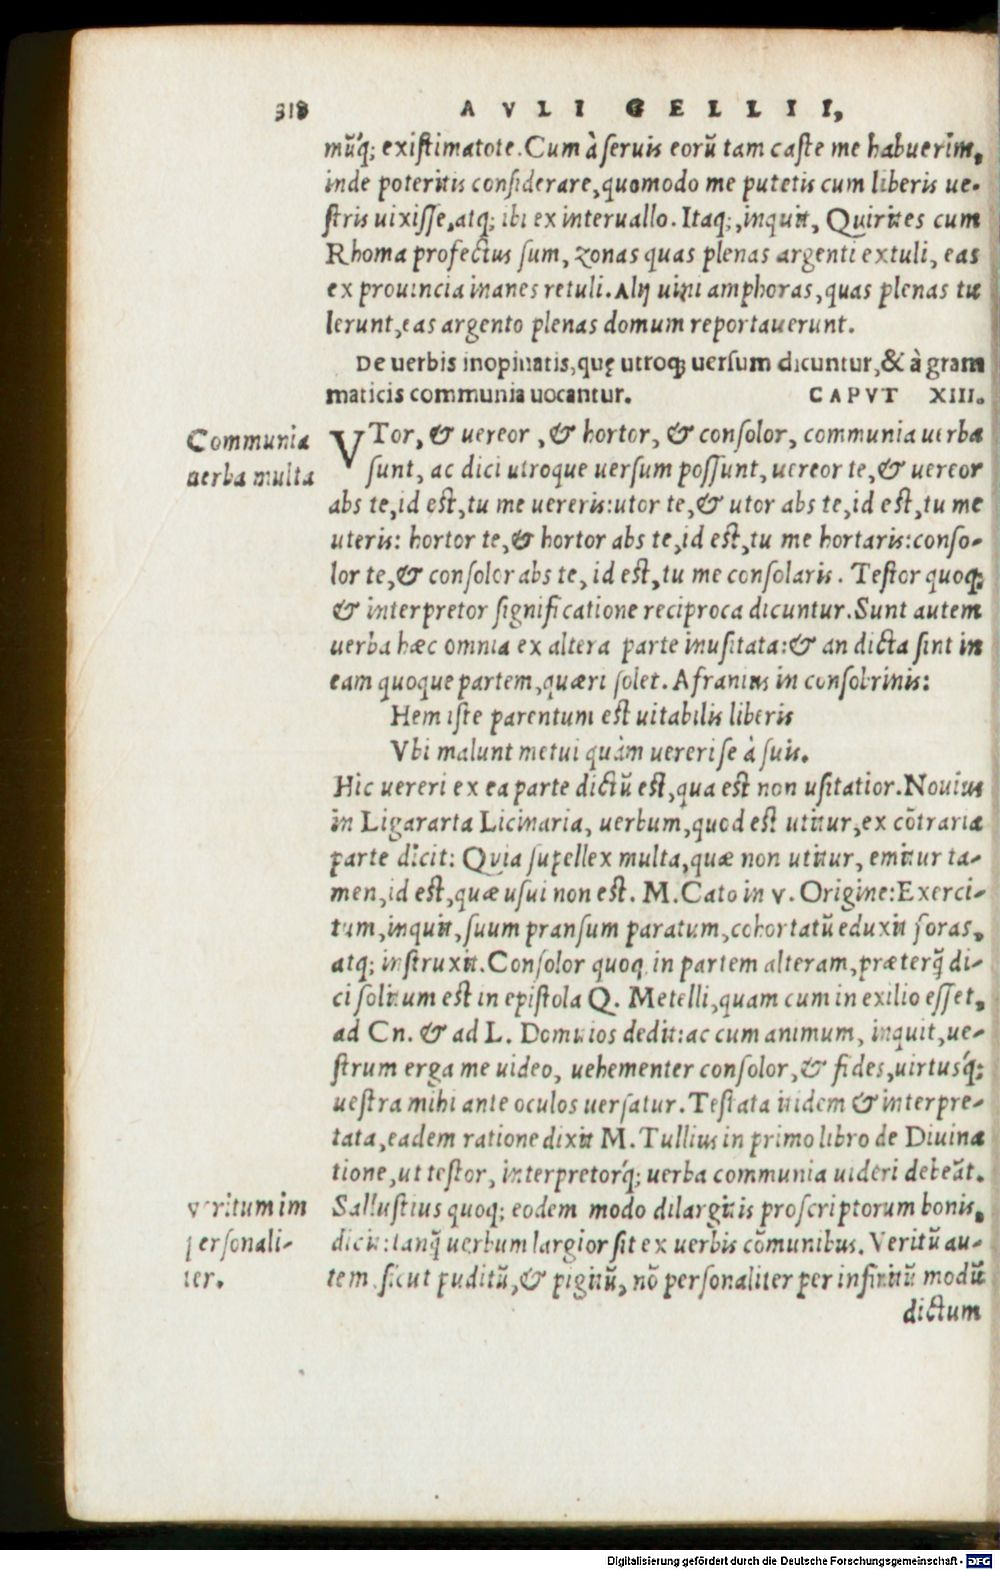 318 AVLI GELLII,
mũq́; existimatote. Cum à seruis eorũ tam caste me habuerim,
inde poteritis considerare, quomodo me putetis cum liberis ue-
stris uixisse, atq; ibi ex interuallo. Itaq;, inquit, Quirites cum
Rhoma profectus sum, zonas quas plenas argenti extuli, eas
ex prouincia inanes retuli. Alij uini amphoras, quas plenas tu
lerunt, eas argento plenas domum reportauerunt.
De uerbis inopinatis, quę utroq; uersum dicuntur, & à gram
maticis communia uocantur. CAPVT XIII.
Communia
uerba multa
VTor, & uereor, & hortor, & consolor, communia uerba
sunt, ac dici utroque uersum possunt, uereor te, & uereor
abs te, id est, tu me uereris: utor te, & utor abs te, id est, tu me
uteris: hortor te, & hortor abs te, id est, tu me hortaris: conso-
lor te, & consolor abs te, id est, tu me consolaris. Testor quoq;
& interpretor significatione reciproca dicuntur. Sunt autem
uerba hæc omnia ex altera parte inusitata: & an dicta sint in
eam quoque partem, quæri solet. Afranius in consobrinis:
Hem iste parentum est uitabilis liberis
Vbi malunt metui quàm uereri se à suis.
Hic uereri ex ea parte dictũ est, qua est non usitatior. Nouius
in Ligararta Licinaria, uerbum, quod est utitur, ex cõtraria
parte dicit: Quia supellex multa, quæ non utitur, emitur ta-
men, id est, quæ usui non est. M. Cato in v. Origine: Exerci-
tum, inquit, suum pransum paratum, cohortatũ eduxit foras,
atq; instruxit. Consolor quoq; in partem alteram, præterq̃ di-
ci solitum est in epistola Q. Metelli, quam cum in exilio esset,
ad Cn. & ad L. Domitios dedit: ac cum animum, inquit, ue-
strum erga me uideo, uehementer consolor, & fides, uirtusq́;
uestra mihi ante oculos uersatur. Testata itidem & interpre-
tata, eadem ratione dixit M. Tullius in primo libro de Diuina
tione, ut testor, interpretorq́; uerba communia uideri debeãt.
veritum im
personali-
ter.
Sallustius quoq; eodem modo dilargitis proscriptorum bonis,
dicit: tanq̃ uerbum largior sit ex uerbis cõmunibus. Veritũ au-
tem sicut puditũ, & pigitũ, nõ personaliter per infinitũ modũ
dictum
Digitalisierung gefördert durch die Deutsche Forschungsgemeinschaft - DFG